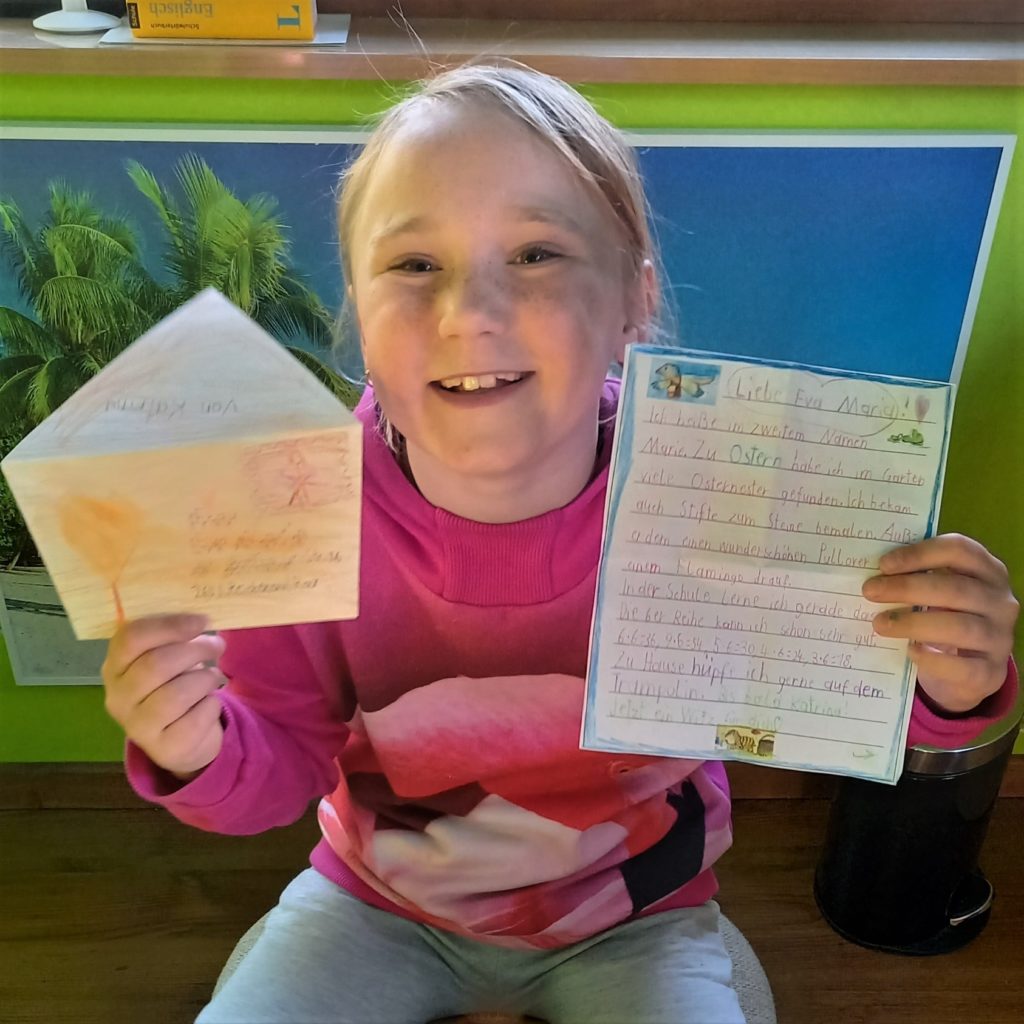 Schulwörterbuch
Englisch
L
Von Katrina
Liebe Eva Maria!
Ich heiße im zweitem Namen
Marie. Zu Ostern habe ich im Garten
viele Osternester gefunden. Ich bekam
auch Stifte zum Steine bemalen. Auß-
erdem einen wunderschönen Pullover
einem Flamingo drauf.
In der Schule lerne ich gerade das
Die 6er Reihe kann ich schon sehr gut.
6·6=36, 9·6=54, 5·6=30, 4·6=24, 3·6=18.
Zu Hause hüpfe ich gerne auf dem
Trampolin. Katrina!
Jetzt ein Witz für dich